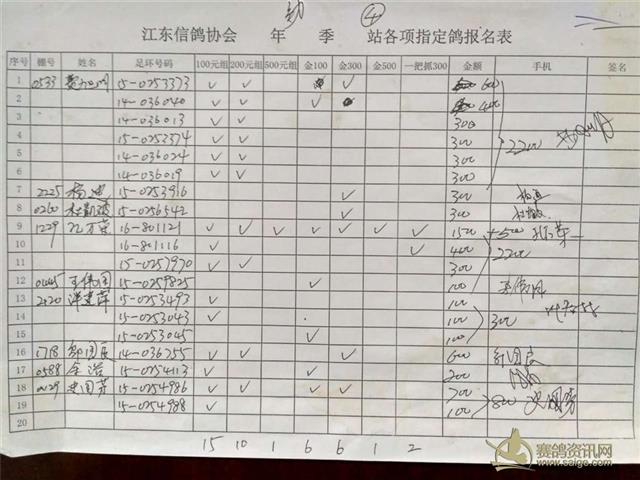 ④
江东信鸽协会 年 季 站各项指定鸽报名表
序号 棚号 姓名 足环号码 100元组 200元组 500元组 金100 金300 金500 一把抓300 金额 手机 签名
1 0533 15-0253373 ✓ ✓ ✓ 600
2 14-036040 ✓ ✓ ✓ 400
3 14-036013 ✓ ✓ 300
4 15-0253374 ✓ ✓ 300 2200
5 14-036024 ✓ ✓ 300
6 14-036019 ✓ ✓ 300
7 2225 杨迪 15-0253916 ✓ 300 杨迪
8 0260 15-0256542 ✓ 300
9 1229 孔万荣 16-801121 ✓ ✓ ✓ ✓ ✓ ✓ ✓ 1500
10 16-801116 ✓ ✓ 400 2200
11 15-0257970 ✓ ✓ 300
12 王伟国 15-0259825 ✓ 100 王伟国
13 2420 15-0253493 ✓ 100
14 15-0253043 ✓ 100 300
15 15-0253045 ✓ 100
16 1718 邬国良 14-036255 ✓ ✓ ✓ 600 邬国良
17 0588 余浩 15-0254113 ✓ ✓ 200
18 0129 史国芳 15-0254986 ✓ ✓ ✓ ✓ 700 800 史国芳
19 15-0254988 ✓ 100
20
15 10 1 6 6 1 2
赛鸽资讯网
www.saige.com